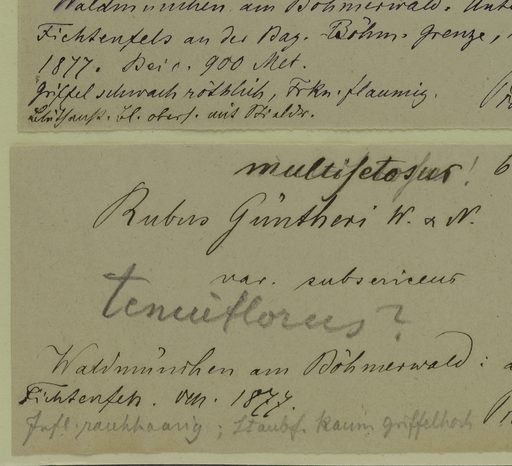 Waldmünchen am Böhmerwald. Unt
Fichtenfels an der Bay. Böhm. Grenze,
1877. Bei c. 900 Met.
Griffel schwach röthlich, Frkn. flaumig.
Bl. obers. mit
multisetosus! 6
Rubus Güntheri W. & N.
var. subsericeus
tenuiflorus?
Waldmünchen am Böhmerwald:
Fichtenfels. 1877
Infl. rauhhaarig; Staubf. kaum griffelhoch